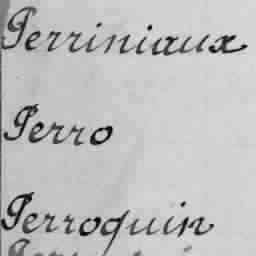 Perriniaux
Perro
Perroquin